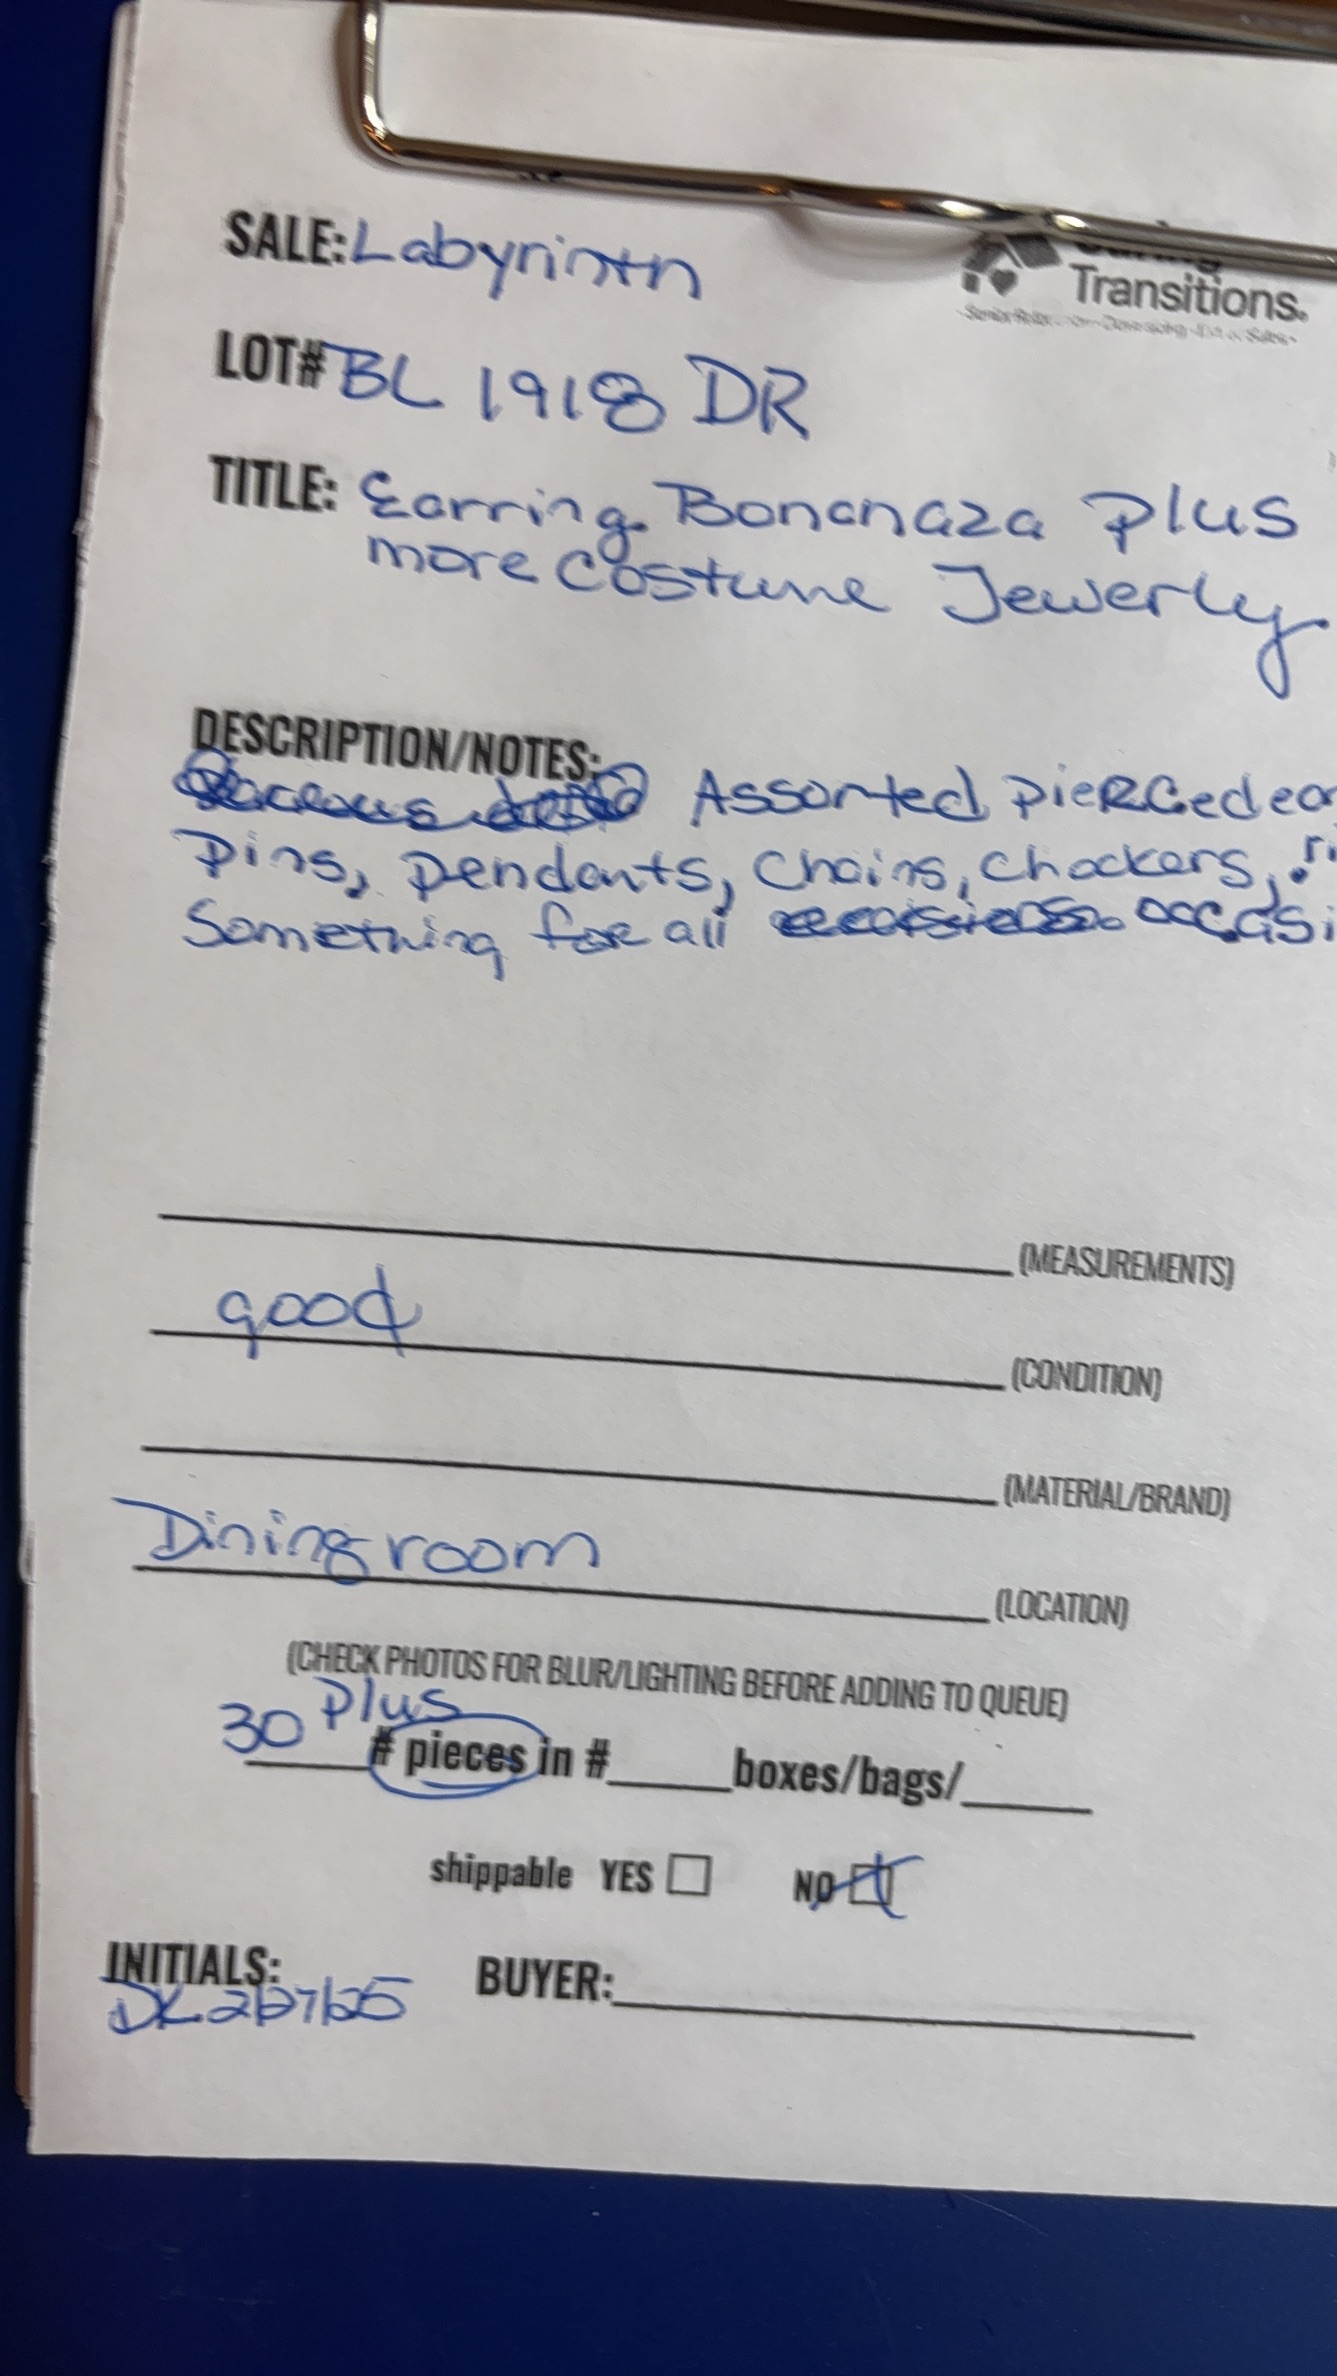 SALE: Labyrinth
Transitions.
LOT# BL 1918 DR
TITLE: Earring Bonanaza Plus
more Costume Jewerly
DESCRIPTION/NOTES:
Assorted Pierced ear
Pins, Pendants, Chains, Chockers, ri
Something for all occasi
(MEASUREMENTS)
good
(CONDITION)
(MATERIAL/BRAND)
Dining room
(LOCATION)
(CHECK PHOTOS FOR BLUR/LIGHTING BEFORE ADDING TO QUEUE)
30 Plus # pieces in # boxes/bags/
shippable YES NO
INITIALS: BUYER: